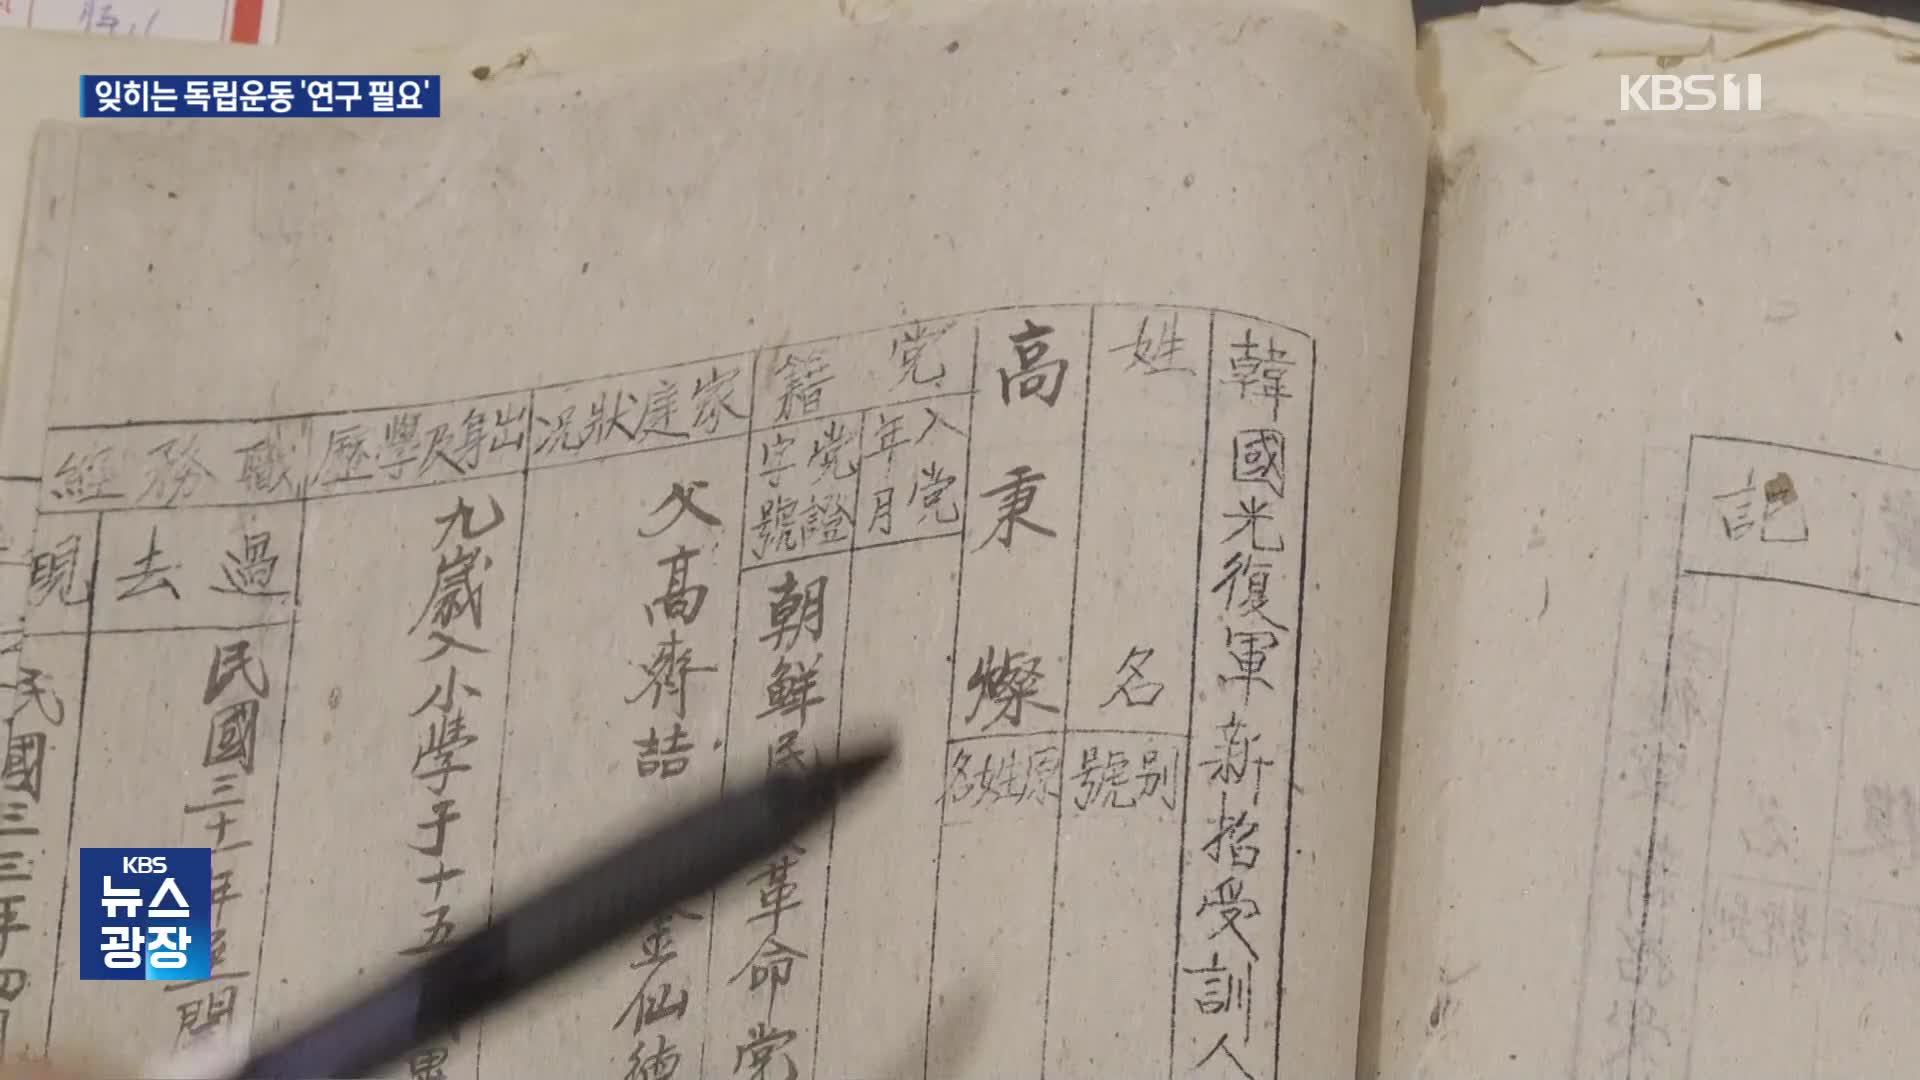 잊히는 독립운동 '연구 필요'
KBS 1
韓國光復軍新招受訓人
姓名
別號
高秉燦
原姓名
党籍
入党年月
党證字號
朝鮮民
革命党
家庭狀况
父高齊喆
金仙德
出身及學歷
九歲入小學于十五
職務經
過去
民國三十一年
現
民國三三年四月
記
KBS
뉴스
광장